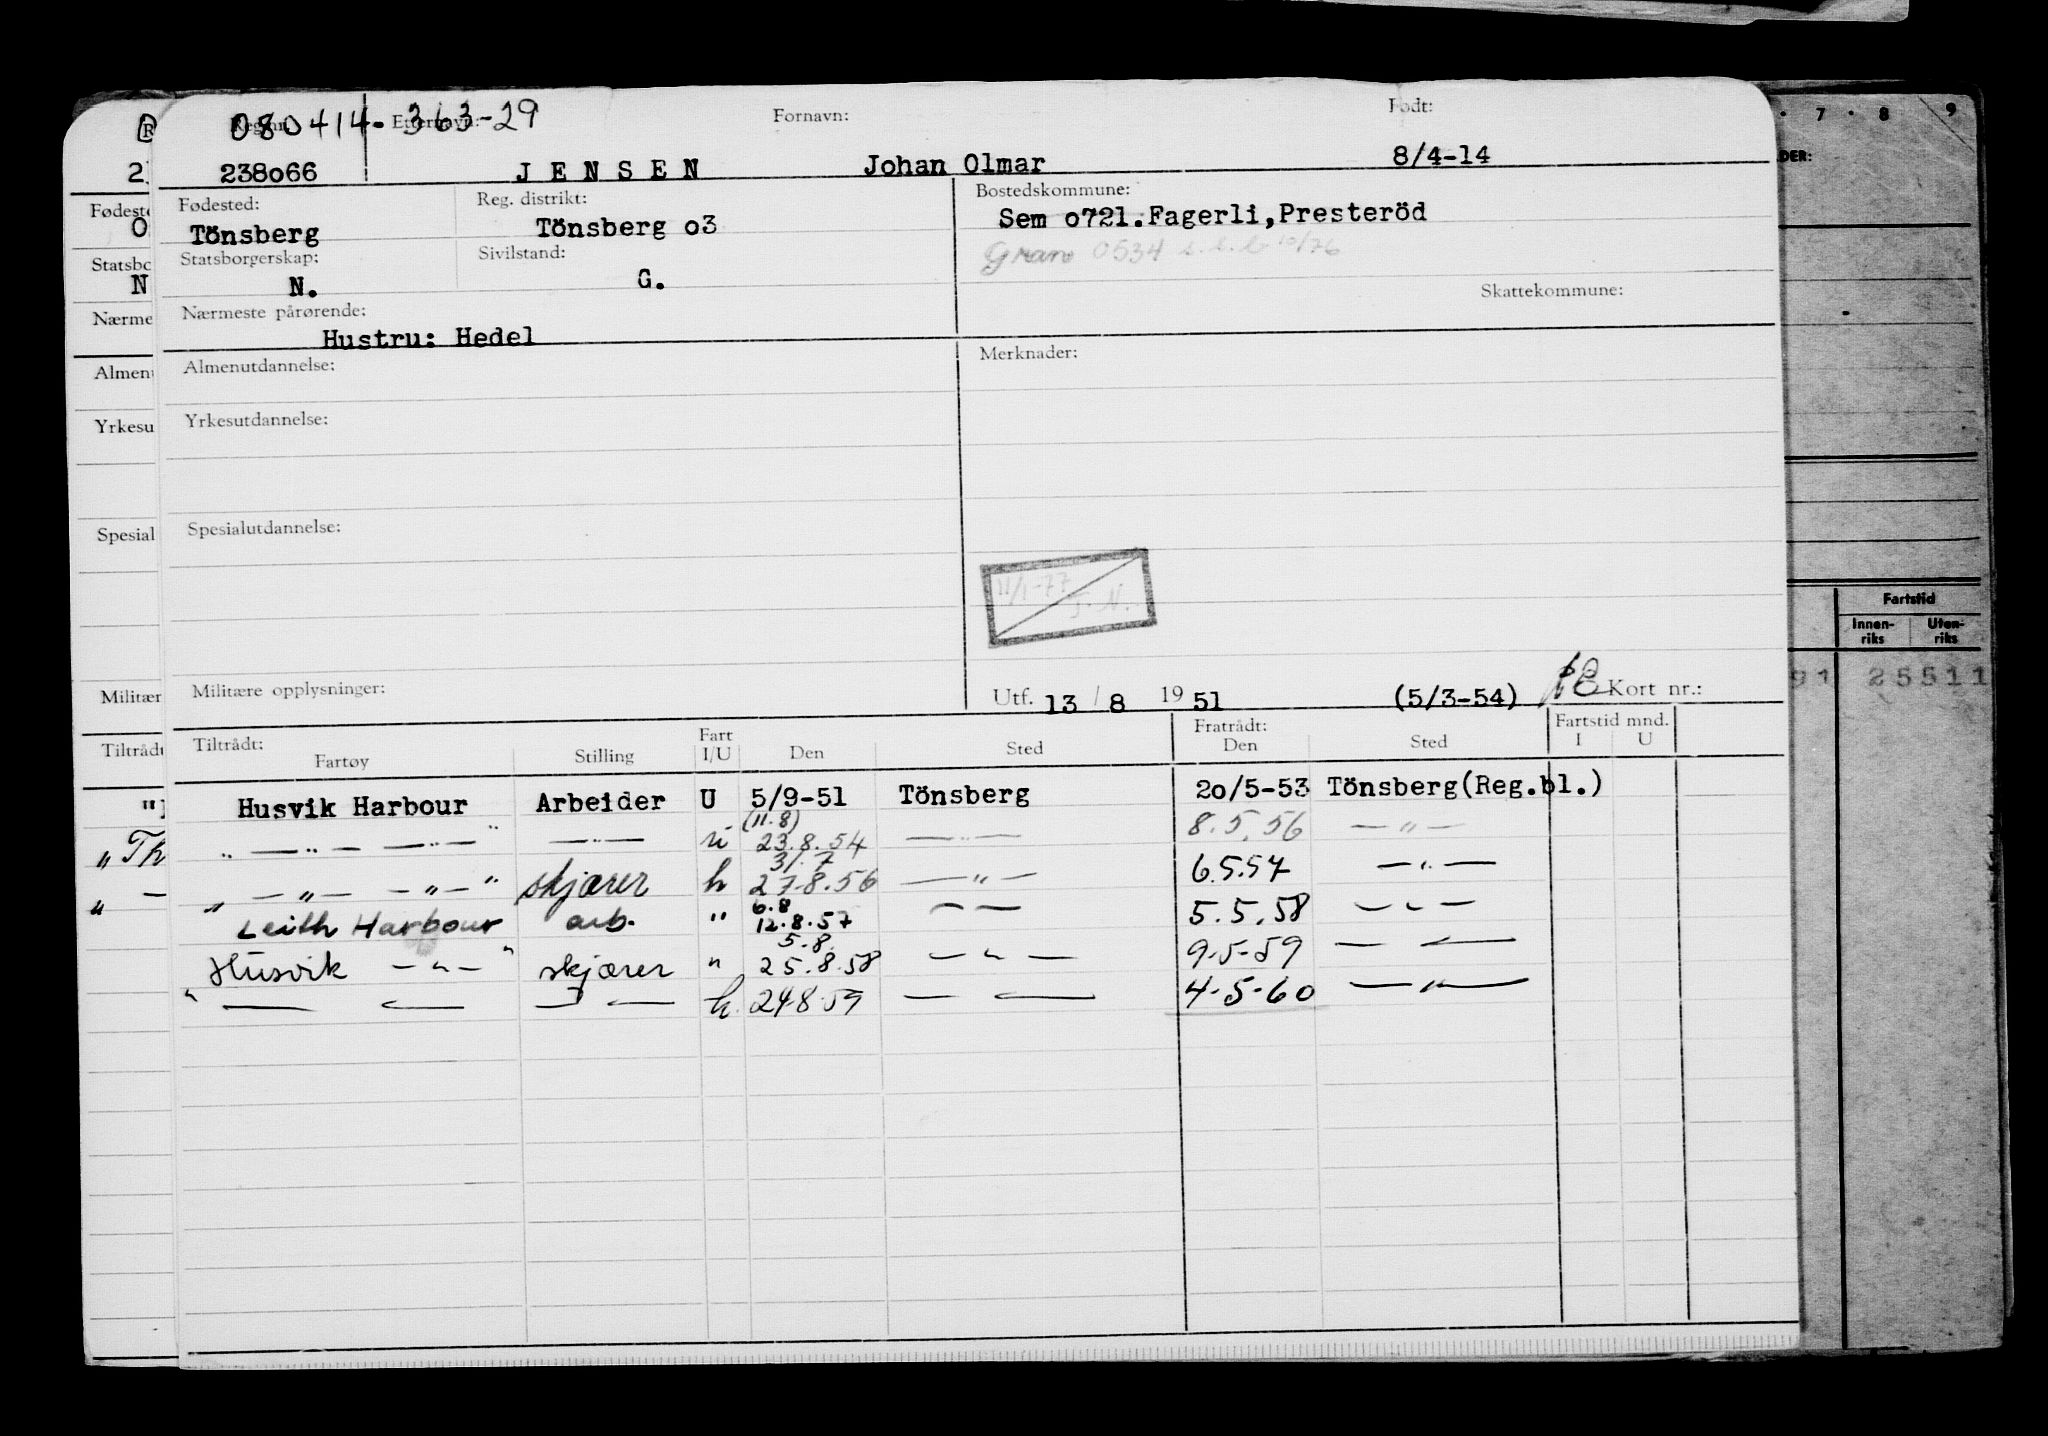 080414-363-29
Reg.nr. Etternavn: Fornavn: Født:
238o66 J E N S E N Johan Olmar 8/4-14
Fødested: Reg. distrikt: Bostedskommune:
Tönsberg Tönsberg o3 Sem o721.Fagerli,Presteröd
Statsborgerskap: Sivilstand: Gran 0534 s.e.b 10/76
N. G.
Skattekommune:
Nærmeste pårørende:
Hustru: Hedel
Almenutdannelse: Merknader:
Yrkesutdannelse:
Spesialutdannelse:
11/1-77
J. N.
Militære opplysninger: Utf. 13 / 8 19 51 (5/3-54) Kort nr.:
Tiltrådt: Fart Fratrådt: Fartstid mnd.
Fartøy Stilling I/U Den Sted Den Sted I U
Husvik Harbour Arbeider U 5/9-51 Tönsberg 2o/5-53 Tönsberg(Reg.bl.)
(11.8)
" —"— —"— " —"— u 23.8.54 —"— 8.5.56 —"—
31.7
" —"— —"— " skjærer u 27.8.56 —"— 6.5.57 —"—
6.8
Leith Harbour arb. " 12.8.57 —"— 5.5.58 —"—
5.8
Husvik —"— " skjærer " 25.8.58 —"— 9.5-59 —"—
" —"— —"— u. 24.8.59 —"— 4-5-60 —"—
R
2
Fødeste
O
Statsbo
N
Nærme
Almen
Yrkesu
Spesial
Militær
Tiltrådt
"Th
"
7 · 8 9
DER:
Fartstid
Innen-
riks
Uten-
riks
91 25511